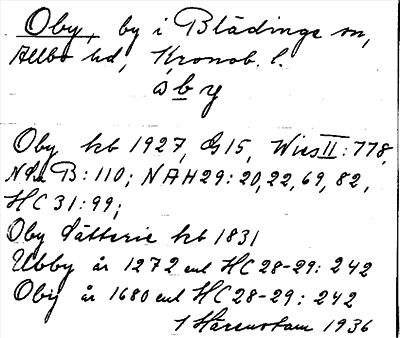 Oby, by i Blädinge sn,
Allbo hd, Kronob. l.
oby
Oby kb 1927, G15, Wies II: 778,
B: 110; NAH29: 20, 22, 69, 82,
HC 31: 99;
Oby Sätteri kb 1831
Ubby år 1272 enl HC 28-29: 242
Obij år 1680 enl HC 28-29: 242
1936